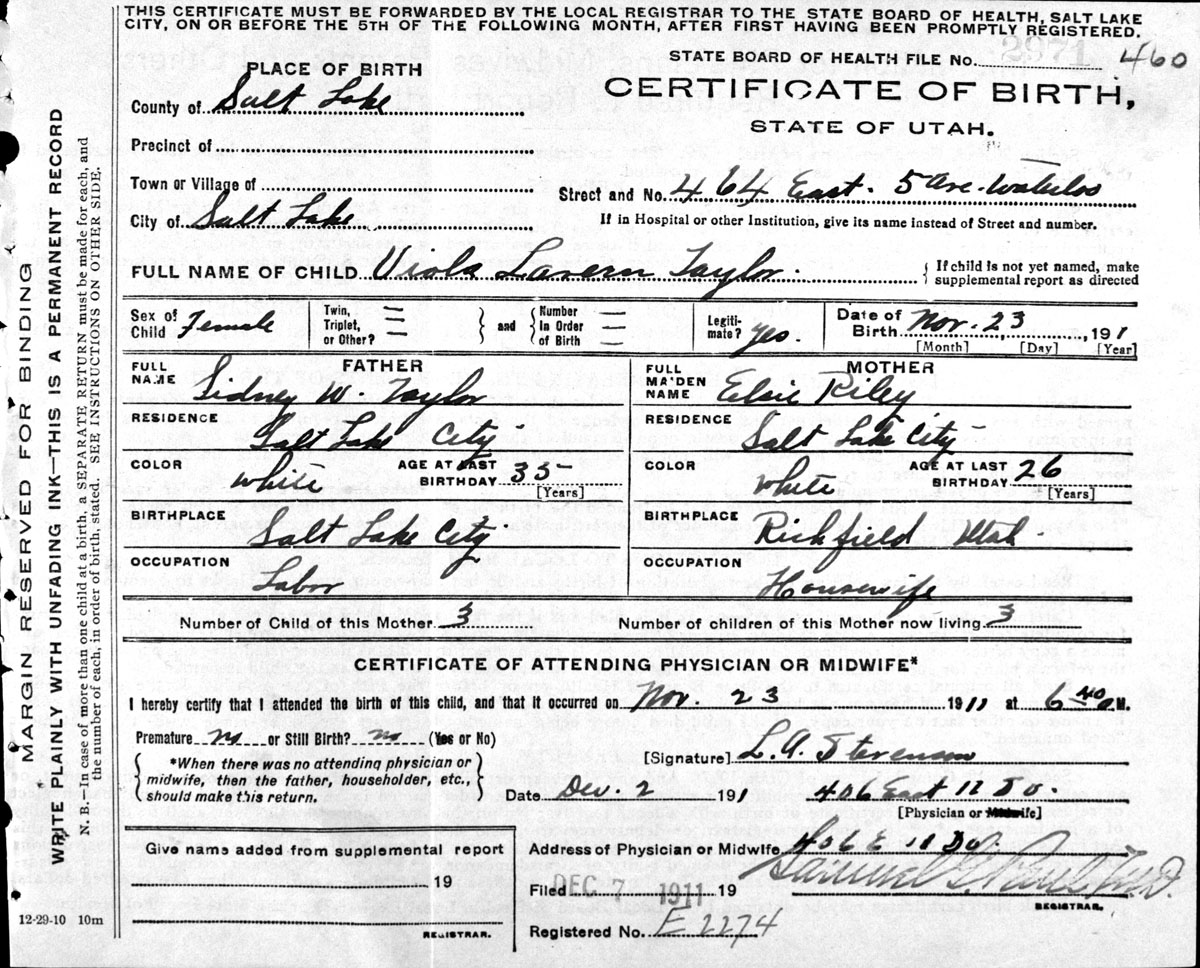 THIS CERTIFICATE MUST BE FORWARDED BY THE LOCAL REGISTRAR TO THE STATE BOARD OF HEALTH, SALT LAKE
CITY, ON OR BEFORE THE 5TH OF THE FOLLOWING MONTH, AFTER FIRST HAVING BEEN PROMPTLY REGISTERED.
STATE BOARD OF HEALTH FILE No. 2971 460
PLACE OF BIRTH
CERTIFICATE OF BIRTH,
STATE OF UTAH.
County of Salt Lake
Precinct of
Town or Village of
Street and No. 464 East. 5 Ave. Waterloo
City of Salt Lake
If in Hospital or other Institution, give its name instead of Street and number.
FULL NAME OF CHILD Viola Lavern Taylor.
{ If child is not yet named, make
supplemental report as directed
Sex of Child Female
Twin, Triplet, or Other? and Number In Order of Birth
Legitimate? Yes.
Date of Birth Nov. 23, 1911
[Month] [Day] [Year]
FATHER
MOTHER
FULL NAME Sidney W. Taylor
FULL MAIDEN NAME Elsie Riley
RESIDENCE Salt Lake City
RESIDENCE Salt Lake City
COLOR White AGE AT LAST BIRTHDAY 35 [Years]
COLOR White AGE AT LAST BIRTHDAY 26 [Years]
BIRTHPLACE Salt Lake City
BIRTHPLACE Richfield Utah
OCCUPATION Labor
OCCUPATION Housewife
Number of Child of this Mother 3
Number of children of this Mother now living 3
CERTIFICATE OF ATTENDING PHYSICIAN OR MIDWIFE*
I hereby certify that I attended the birth of this child, and that it occurred on Nov. 23 1911 at 6 40 M.
Premature no or Still Birth? no (Yes or No)
[Signature] L. A. Stevenson
{ *When there was no attending physician or
midwife, then the father, householder, etc.,
should make this return. }
Date Dec. 2 1911 406 East 11 So.
[Physician or Midwife]
Give name added from supplemental report
19
REGISTRAR.
Address of Physician or Midwife 406 E 11 So.
Filed DEC 7 1911 19
Samuel G. Paul M.D.
REGISTRAR.
Registered No. E 2274
12-29-10 10m
MARGIN RESERVED FOR BINDING
WRITE PLAINLY WITH UNFADING INK—THIS IS A PERMANENT RECORD
N. B.—In case of more than one child at a birth, a SEPARATE RETURN must be made for each, and
the number of each, in order of birth, stated. SEE INSTRUCTIONS ON OTHER SIDE.